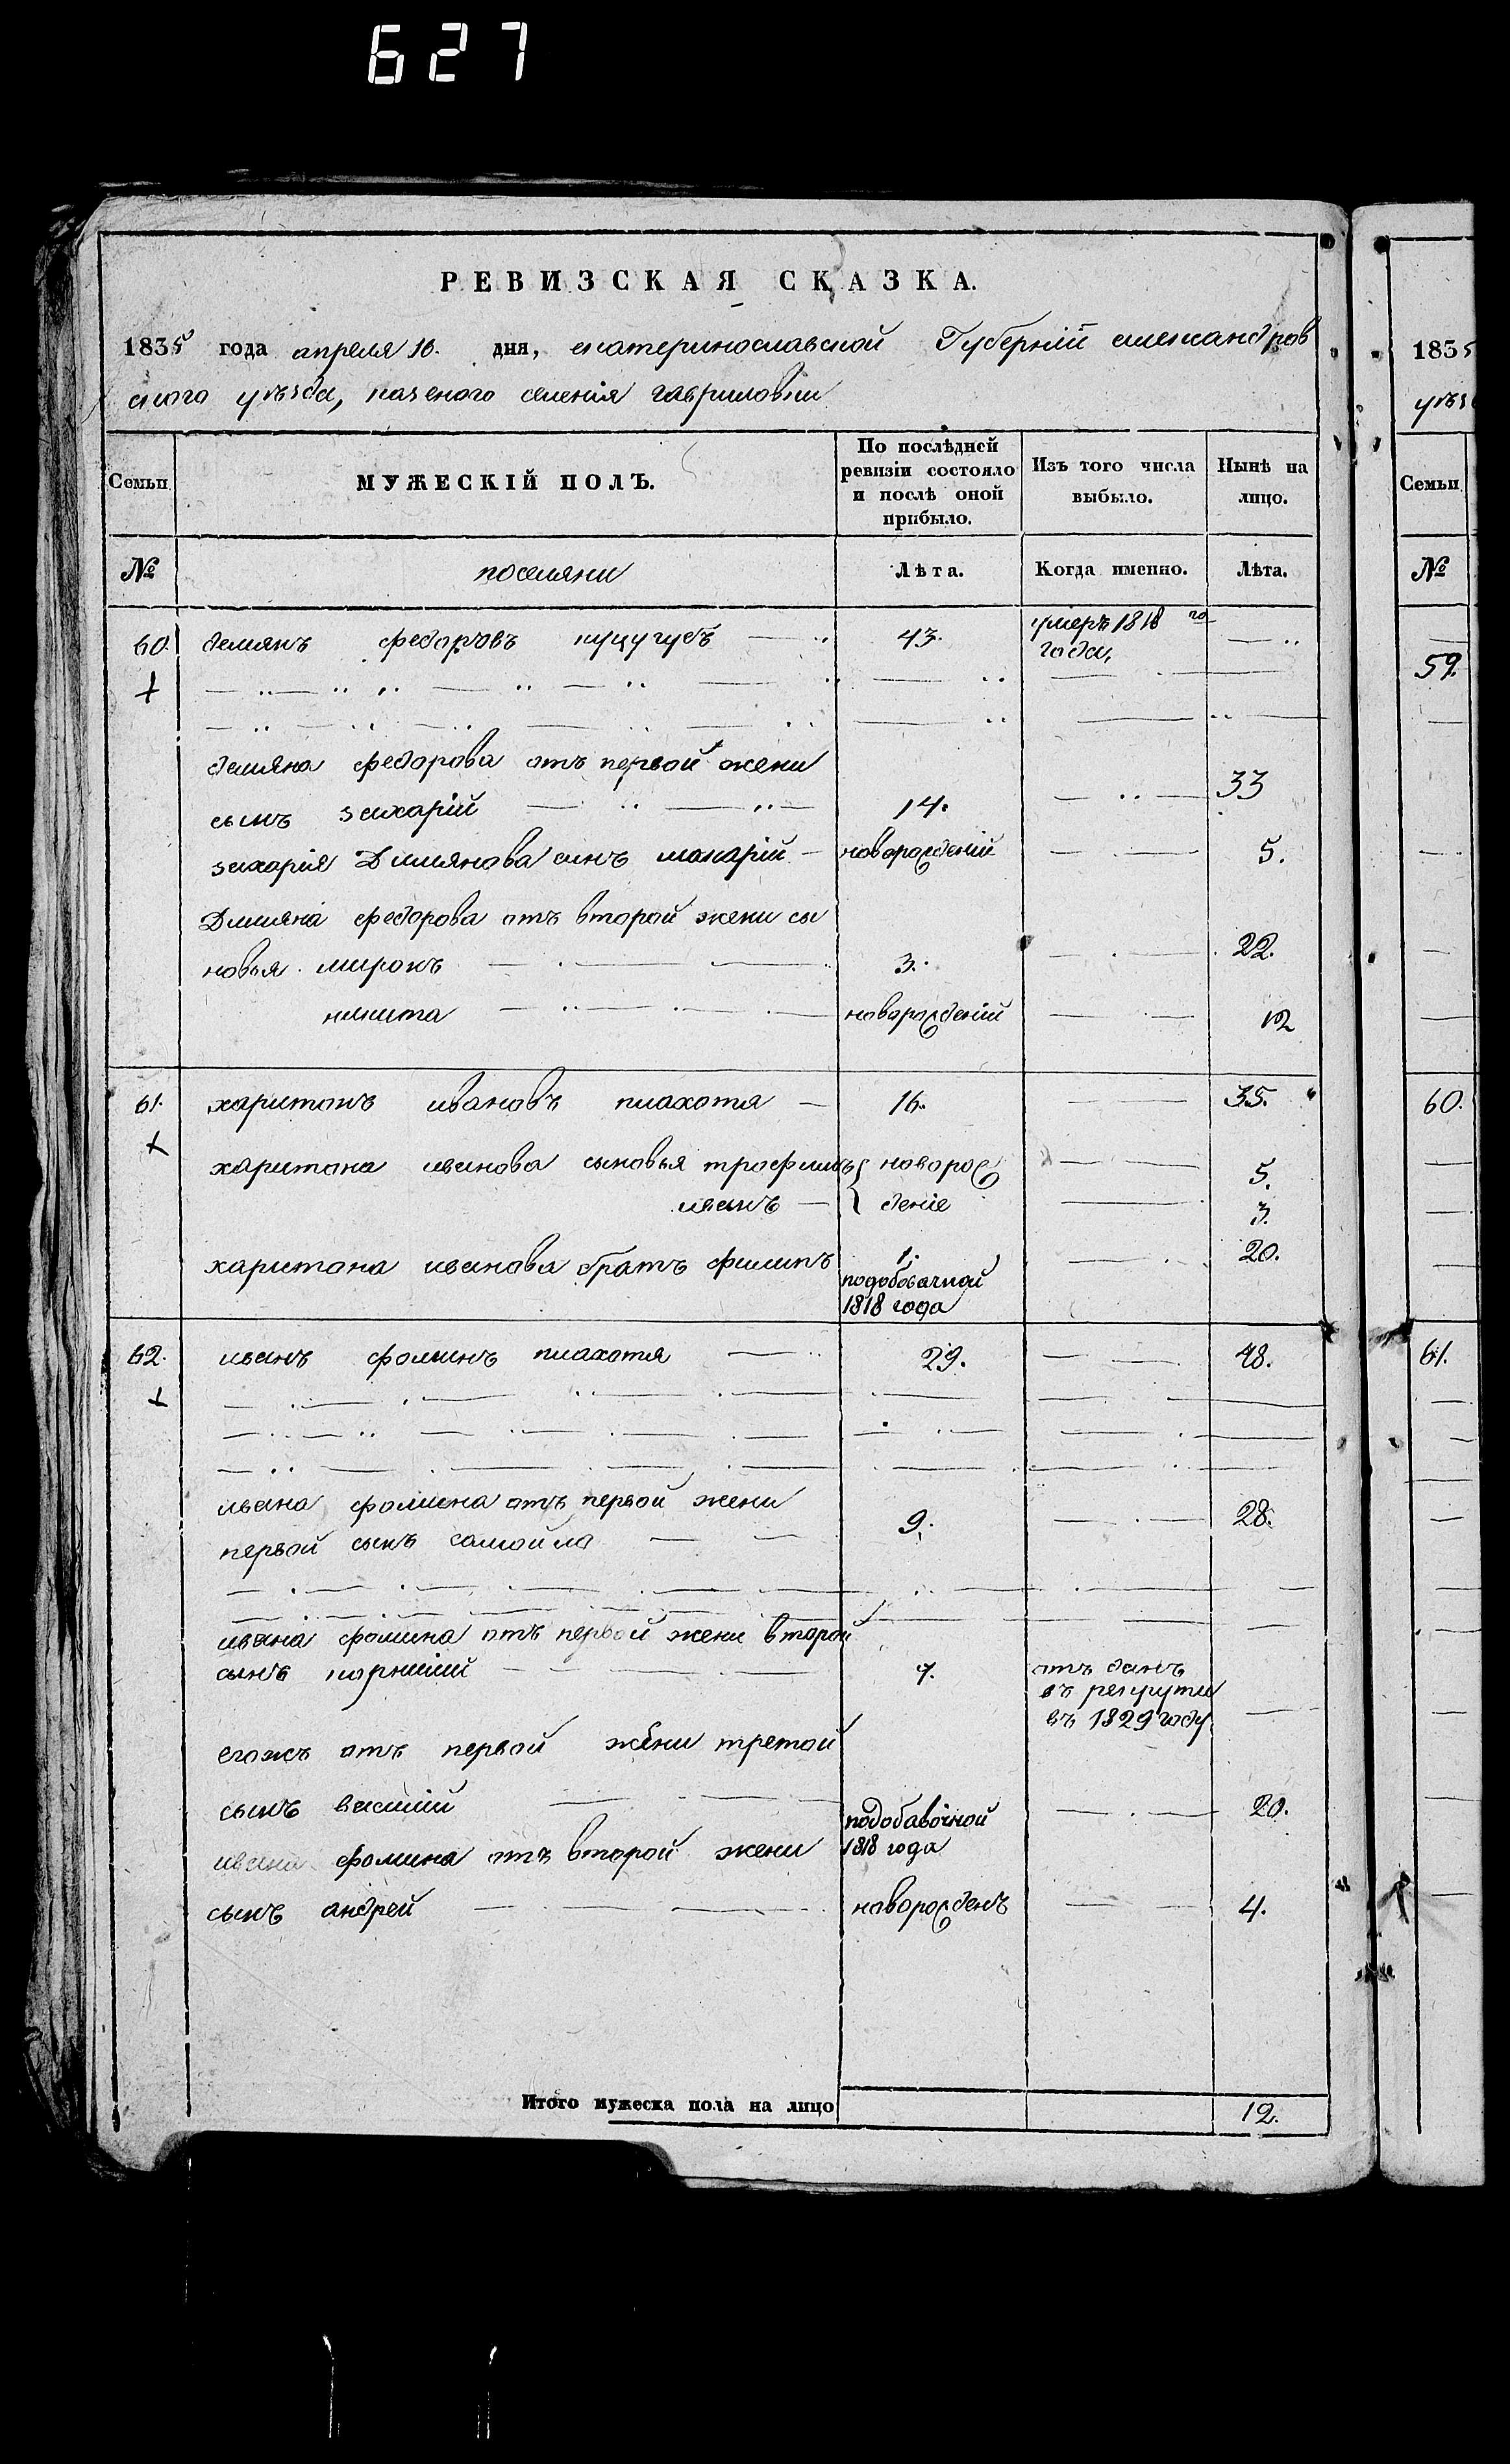 627
РЕВИЗСКАЯ СКАЗКА.
1835 года апреля 16. дня, екатеринославской Губерніи александров
ского уѣзда, казеного селенія гавриловки
1835
уѣз
Семьи
МУЖЕСКІЙ ПОЛЪ.
По послѣдней ревизіи состояло и послѣ оной прибыло.
Изъ того числа выбыло.
Нынѣ на лицо.
Семьи
№
поселяни
Лѣта.
Когда именно.
Лѣта.
№
60. демянъ федоровъ куцугубъ 43. умеръ 1818 го
года,
59.
демяна федорова отъ первой жени
сынъ захарій 14. 33
захарія Димянова синъ макарій новорожденій 5.
Димяна федорова отъ второй жени сы
новья. миронъ 3. 22.
никита новорожденій 12
61. харитонъ ивановъ плахотя 16. 35.
60.
харитона иванова сыновья трофимъ новорож 5.
иванъ деніе 3.
харитона иванова братъ филипъ 1. 20.
подобовачной
1818 года
62. иванъ фоминъ плахотя 29. 48.
61.
ивана фомина отъ первой жени
первой сынъ самойла 9. 28.
ивана фомина отъ первой жени второй
сынъ корнѣий 7. отъ данъ
въ рекруты
въ 1829 году
егожъ отъ первой жени третой
сынъ василій подобавочной 20.
ивана фомина отъ второй жени 1818 года
сынъ андрей новорожденъ 4.
Итого мужеска пола на лицо 12.